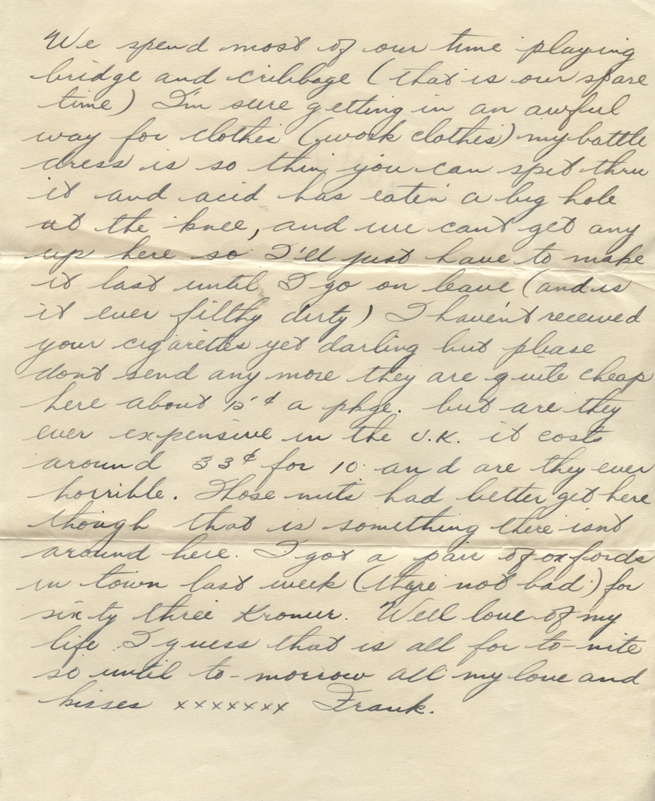 We spend most of our time playing
bridge and cribbage (that is our spare
time) I'm sure getting in an awful
way for clothes (work clothes) my battle
dress is so thin you can spit thru
it and acid has eaten a big hole
at the knee, and we can't get any
up here so I'll just have to make
it last until I go on leave (and is
it ever filthy dirty) I haven't received
your cigarettes yet darling but please
dont send any more they are quite cheap
here about 15¢ a pkge. but are they
ever expensive in the U.K. it costs
around 33¢ for 10. and are they ever
horrible. Those nuts had better get here
though that is something there isnt
around here. I got a pair of oxfords
in town last week (there not bad.) for
sixty three Kroner. Well love of my
life I guess that is all for to-nite
so until to-morrow all my love and
kisses xxxxxxx Frank.